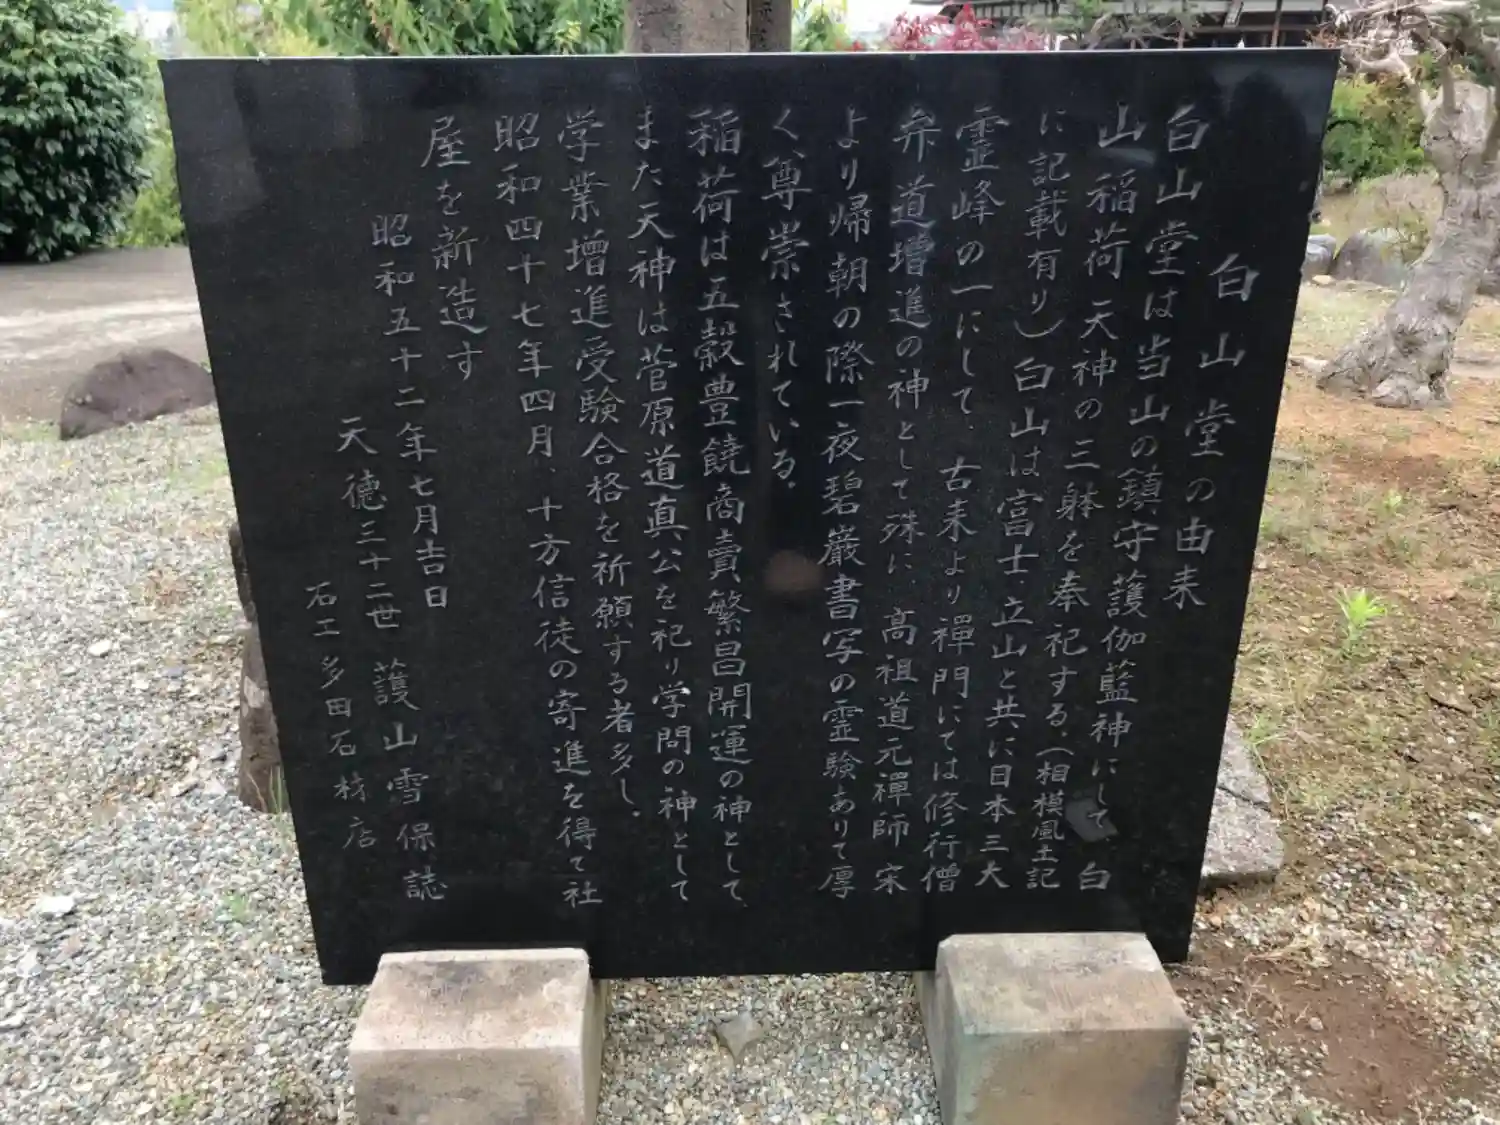 白山堂の由来
白山堂は当山の鎮守護伽藍神にして、白
山 稲荷 天神の三躰を奉祀する。(相模風土記
に記載有り)白山は富士、立山と共に日本三大
霊峰の一にして、古来より禪門にては修行僧
弁道増進の神として殊に、高祖道元禪師 宋
より帰朝の際一夜碧巌書写の霊験ありて厚
く尊崇されている。
稲荷は五穀豊饒商賣繁昌開運の神として、
また天神は菅原道真公を祀り学問の神として
学業増進受験合格を祈願する者多し。
昭和四十七年四月、十方信徒の寄進を得て社
屋を新造す
昭和五十二年七月吉日
天徳三十二世 護山雪保誌
石工 多田石材店